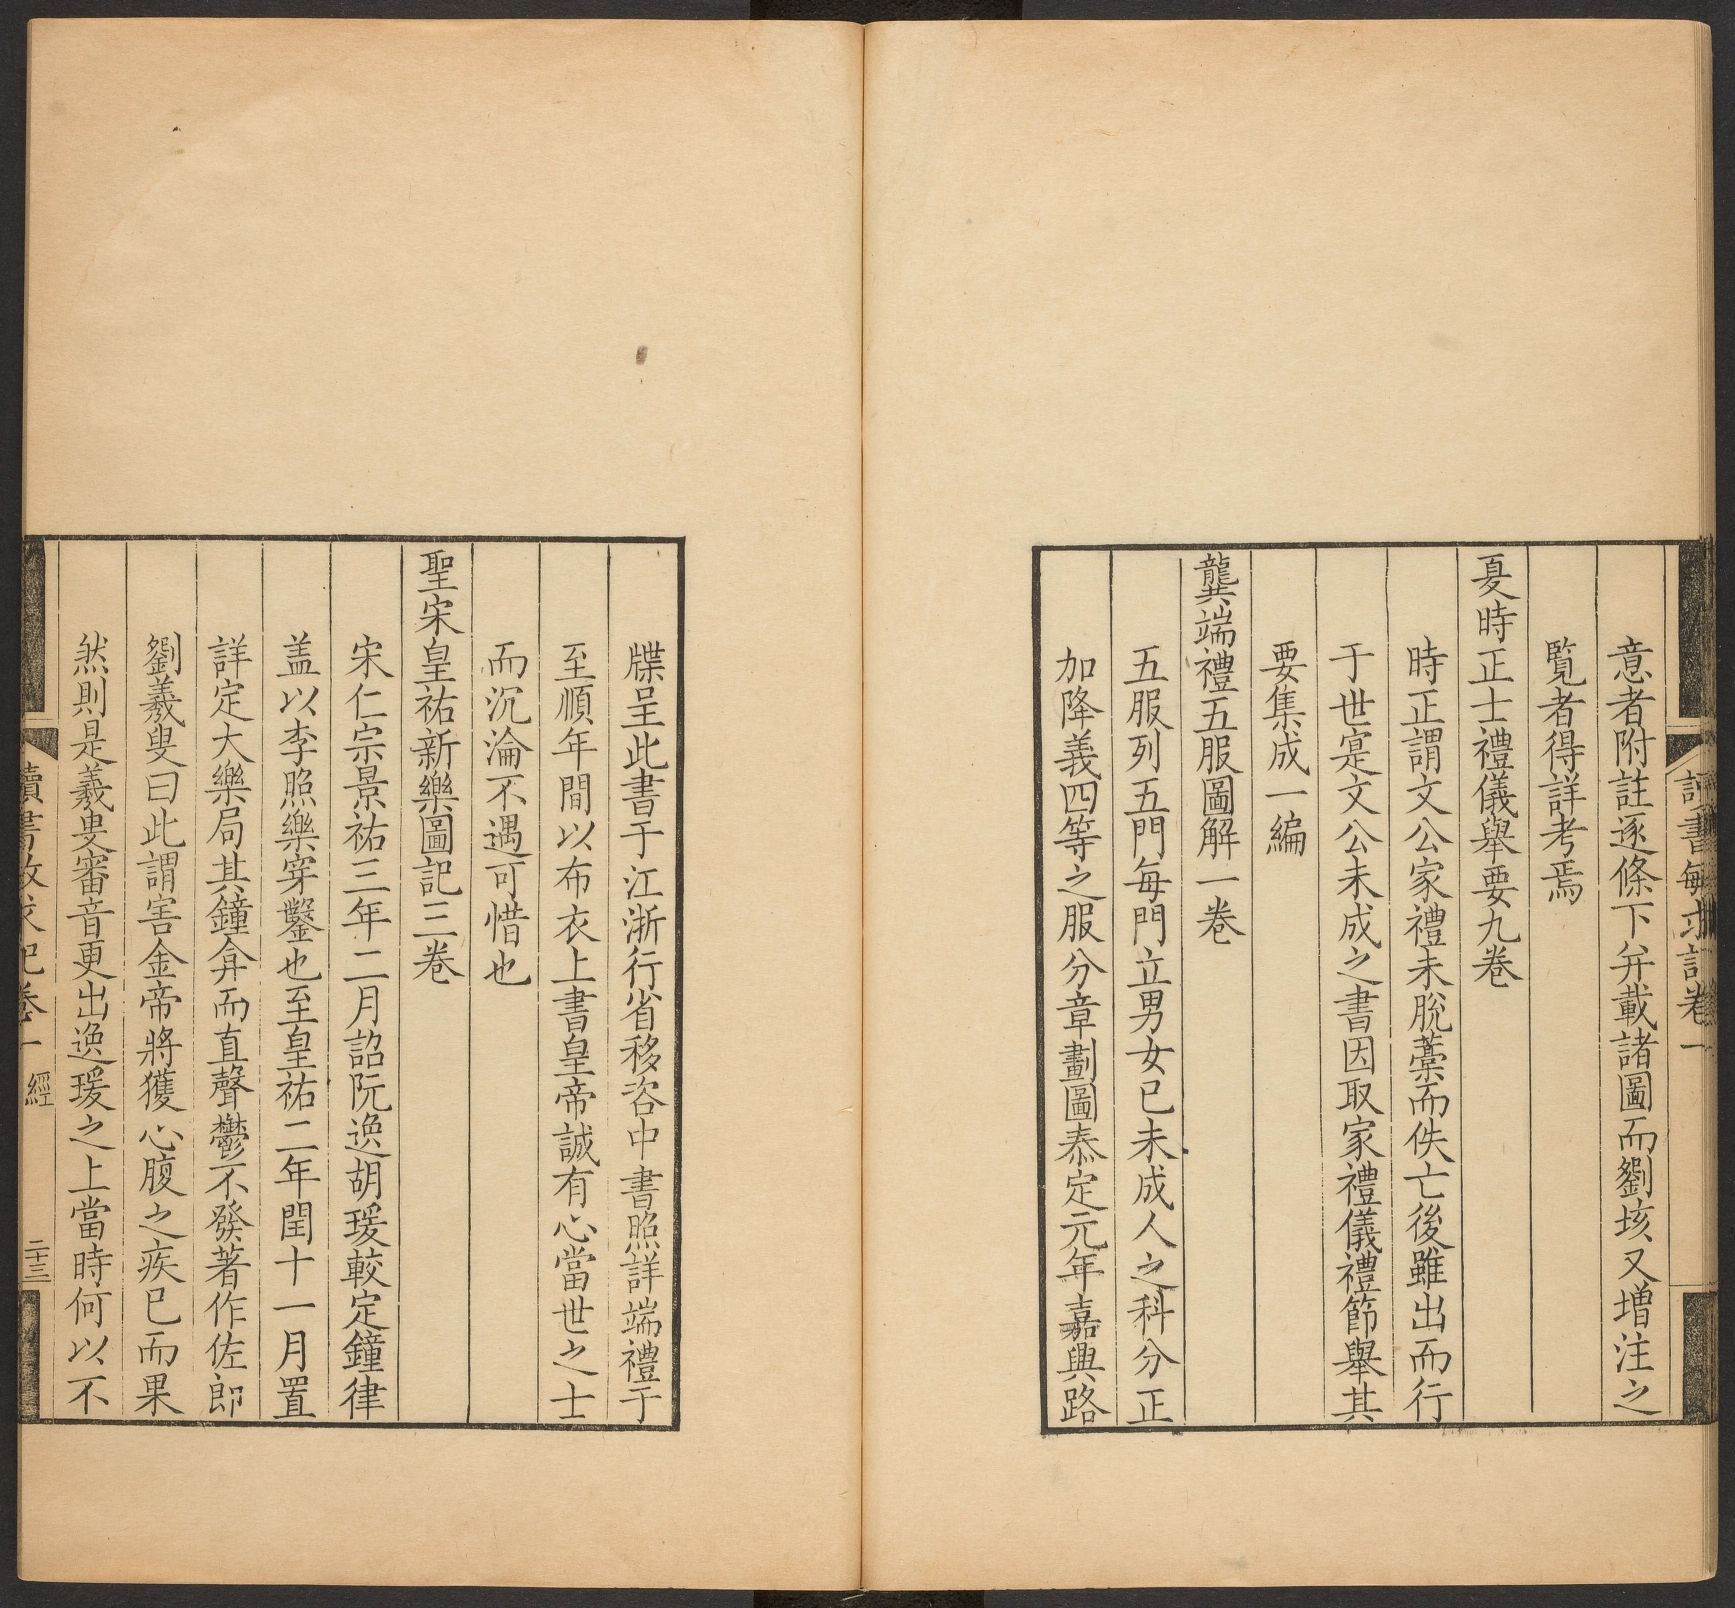 讀書敏求記卷一
意者附註逐條下弁載諸圖而劉垓又增注之
覧者得詳考焉
夏時正士禮儀舉要九卷
時正謂文公家禮未脫藁而佚亡後雖出而行
于世寔文公未成之書因取家禮儀禮節舉其
要集成一編
龔端禮五服圖解一卷
五服列五門每門立男女已未成人之科分正
加降義四等之服分章劃圖泰定元年嘉興路
牒呈此書于江浙行省移咨中書照詳端禮于
至順年間以布衣上書皇帝誠有心當世之士
而沉淪不遇可惜也
聖宋皇祐新樂圖記三卷
宋仁宗景祐三年二月詔阮逸胡瑗較定鐘律
盖以李照樂穿鑿也至皇祐二年閏十一月置
詳定大樂局其鐘弇而直聲鬱不發著作佐郎
劉羲叟曰此謂害金帝將獲心腹之疾已而果
然則是羲叟審音更出逸瑗之上當時何以不
讀書敏求記卷一 經 二十三